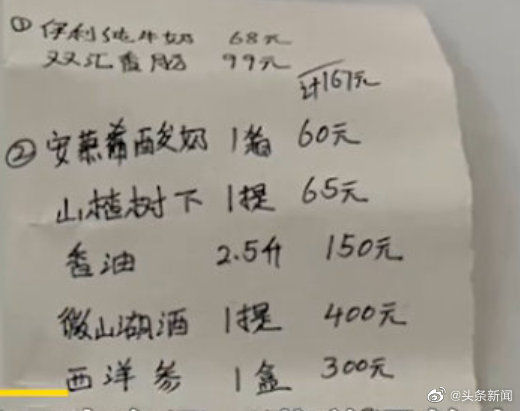 ① 伊利纯牛奶 68元
双汇香肠 99元
计167元
② 安慕希酸奶 1箱 60元
山楂树下 1提 65元
香油 2.5升 150元
微山湖酒 1提 400元
西洋参 1盒 300元
@头条新闻